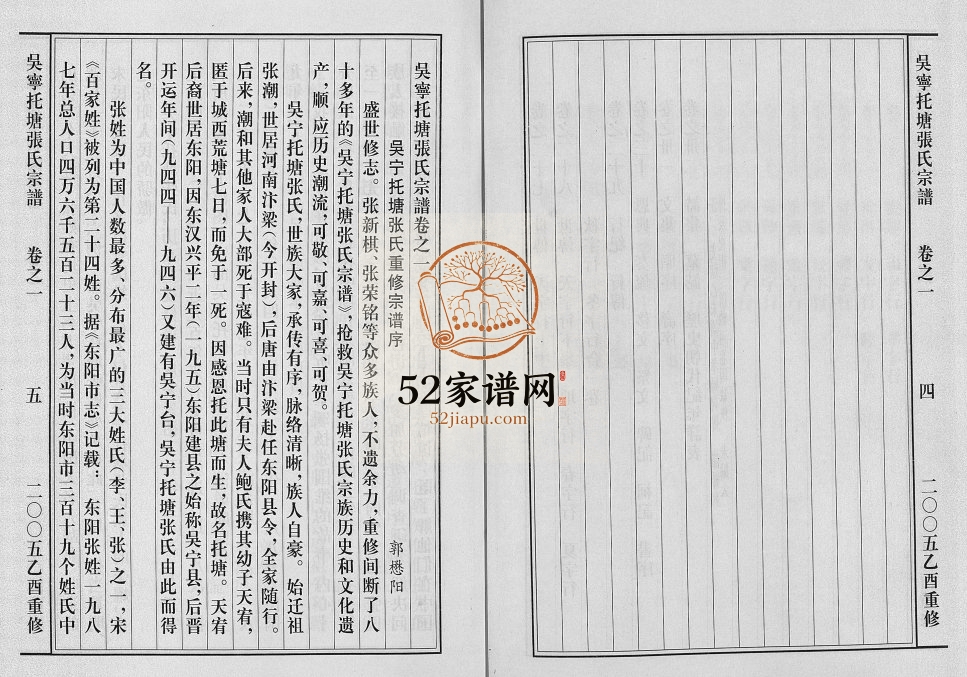 吳寧托塘張氏宗譜 卷之一 四 二〇〇五乙酉重修
吳寧托塘張氏宗譜卷之一
吳宁托塘张氏重修宗谱序
郭懋阳
盛世修志。张新棋、张荣铭等众多族人,不遗余力,重修间断了八
十多年的《吴宁托塘张氏宗谱》,抢救吴宁托塘张氏宗族历史和文化遗
产,顺应历史潮流,可敬、可嘉、可喜、可贺。
吴宁托塘张氏,世族大家,承传有序,脉络清晰,族人自豪。始迁祖
张潮,世居河南汴梁(今开封),后唐由汴梁赴任东阳县令,全家随行。
后来,潮和其他家人大部死于寇难。当时只有夫人鲍氏携其幼子天宥,
匿于城西荒塘七日,而免于一死。因感恩托此塘而生,故名托塘。天宥
后裔世居东阳,因东汉兴平二年(一九五)东阳建县之始称吴宁县,后晋
开运年间(九四四——九四六)又建有吴宁台,吴宁托塘张氏由此而得
名。
张姓为中国人数最多、分布最广的三大姓氏(李、王、张)之一,宋
《百家姓》被列为第二十四姓。据《东阳市志》记载:东阳张姓一九八
七年总人口四万六千五百二十三人,为当时东阳市三百十九个姓氏中
吳寧托塘張氏宗譜 卷之一 五 二〇〇五乙酉重修
52家谱网
52jiapu.com